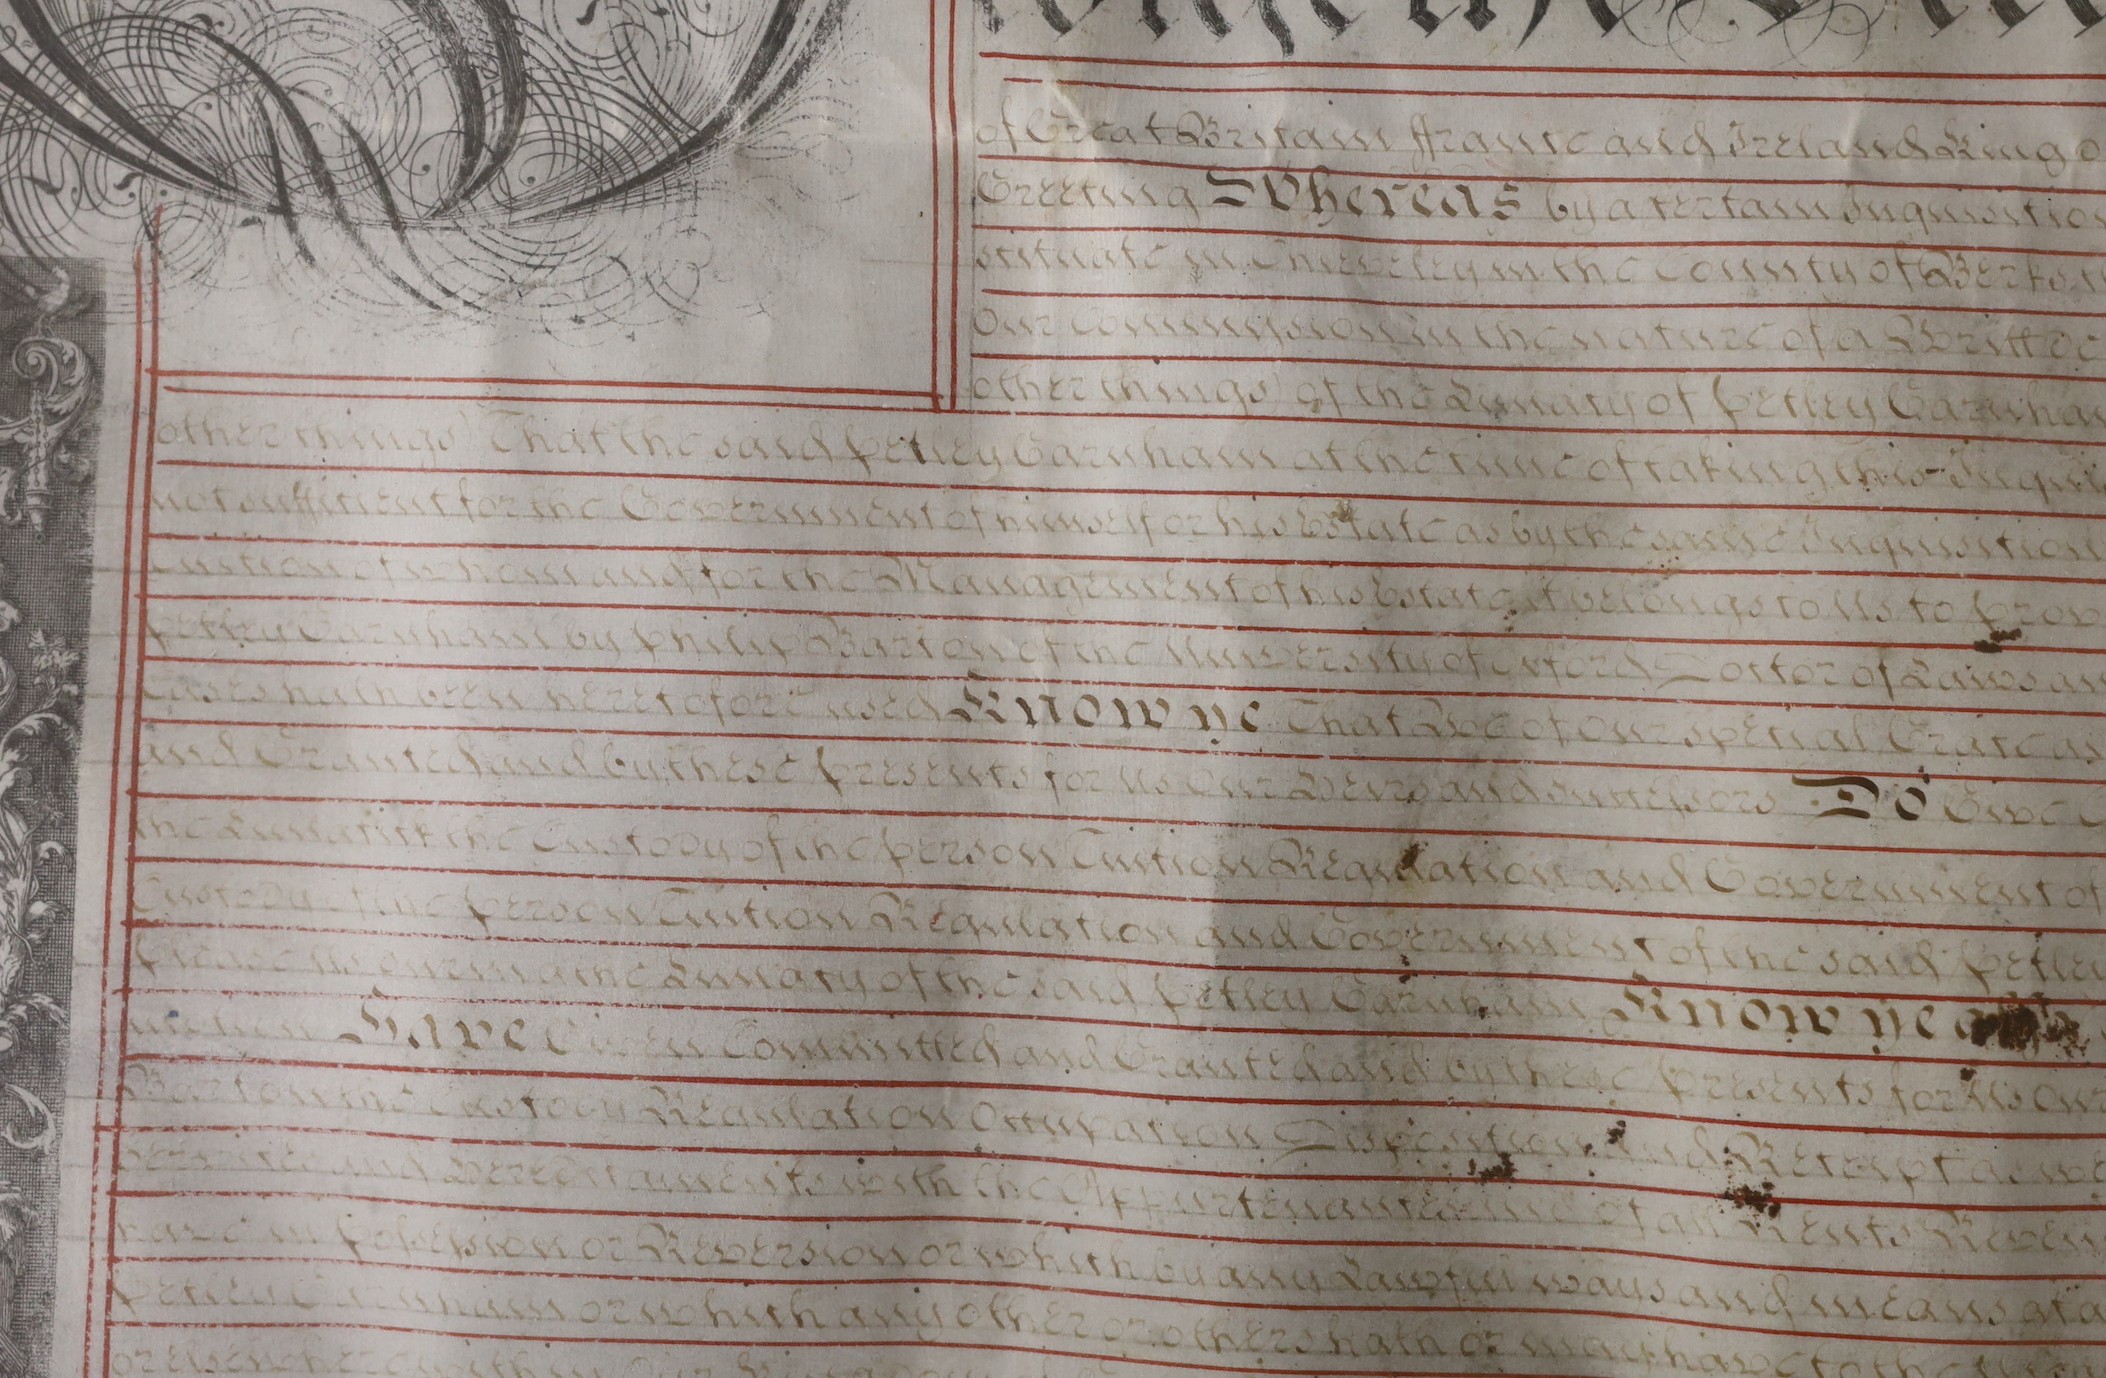 George the Se
of Great Britain ffrance and Ireland King o
Greeting Whereas by a certain Inquisition
scituate in Chieveley in the County of Berks
Our Commission in the nature of a Writt
other things) of the Lunacy of Petley Garnham
other things) That the said Petley Garnham at the time of taking this Inqui
not sufficient for the Government of himself or his Estate as by the same Inquisition
Tuition of whom and for the Management of his Estate it belongs to Us to prov
Petley Garnham by Philip Barton of the University of Oxford Doctor of Laws an
Cases hath been heretofore used Know ye That Wee of Our special Grace
and Granted and by these presents for Us Our Heirs and Successors Do Give
the Lunatick the Custody of the person Tuition Regulation and Government of
Custody of the person Tuition Regulation and Government of the said Petley
please us during the Lunacy of the said Petley Garnham Know ye
Have Given Committed and Granted and by these presents for Us Our
Barton the Custody Regulation Occupation Disposition and Receipt as we
and Hereditaments with the Appurtenances and of all Rents Reven
have in possession or Reversion or which by any Lawful ways and means
Petley Garnham or which any other or others hath or may have to the
or elsewhere within Our